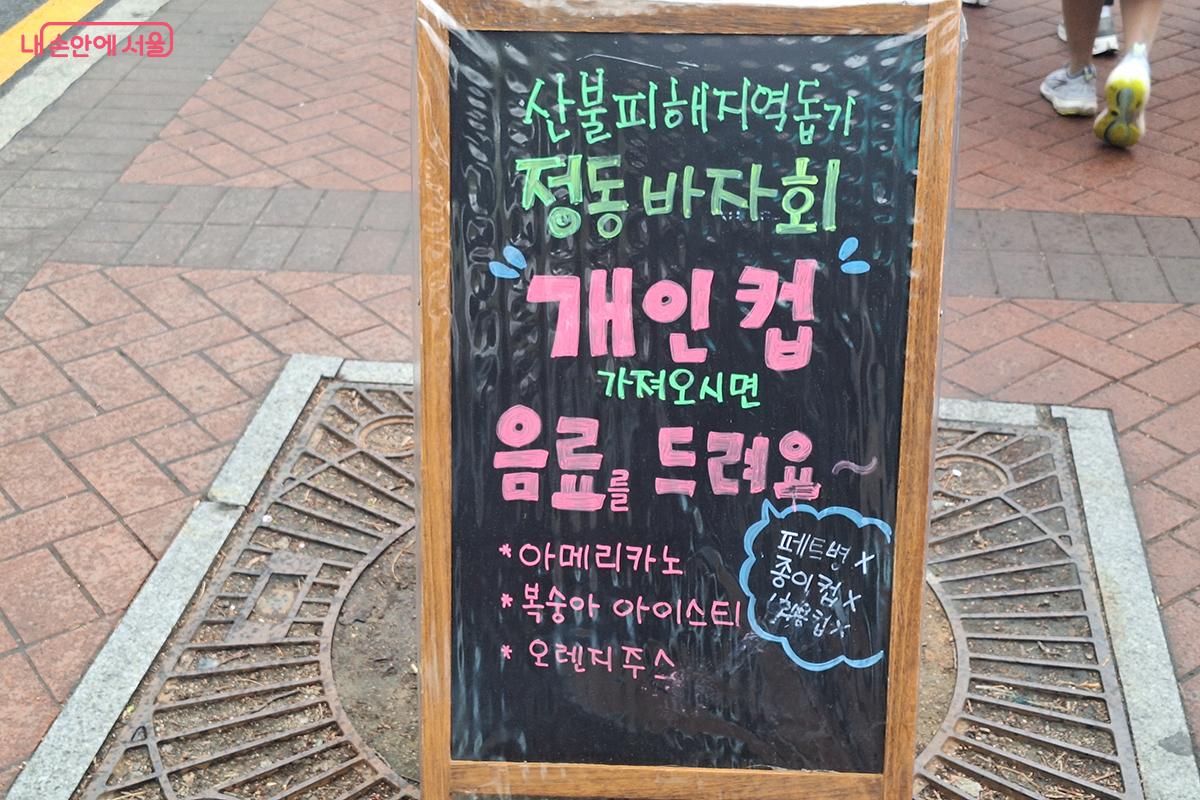 내 손안에 서울
산불피해지역돕기
정동 바자회
개인컵
가져오시면
음료를 드려요~
* 아메리카노
* 복숭아 아이스티
* 오렌지주스
페트병 X
종이컵 X
1회용컵 X